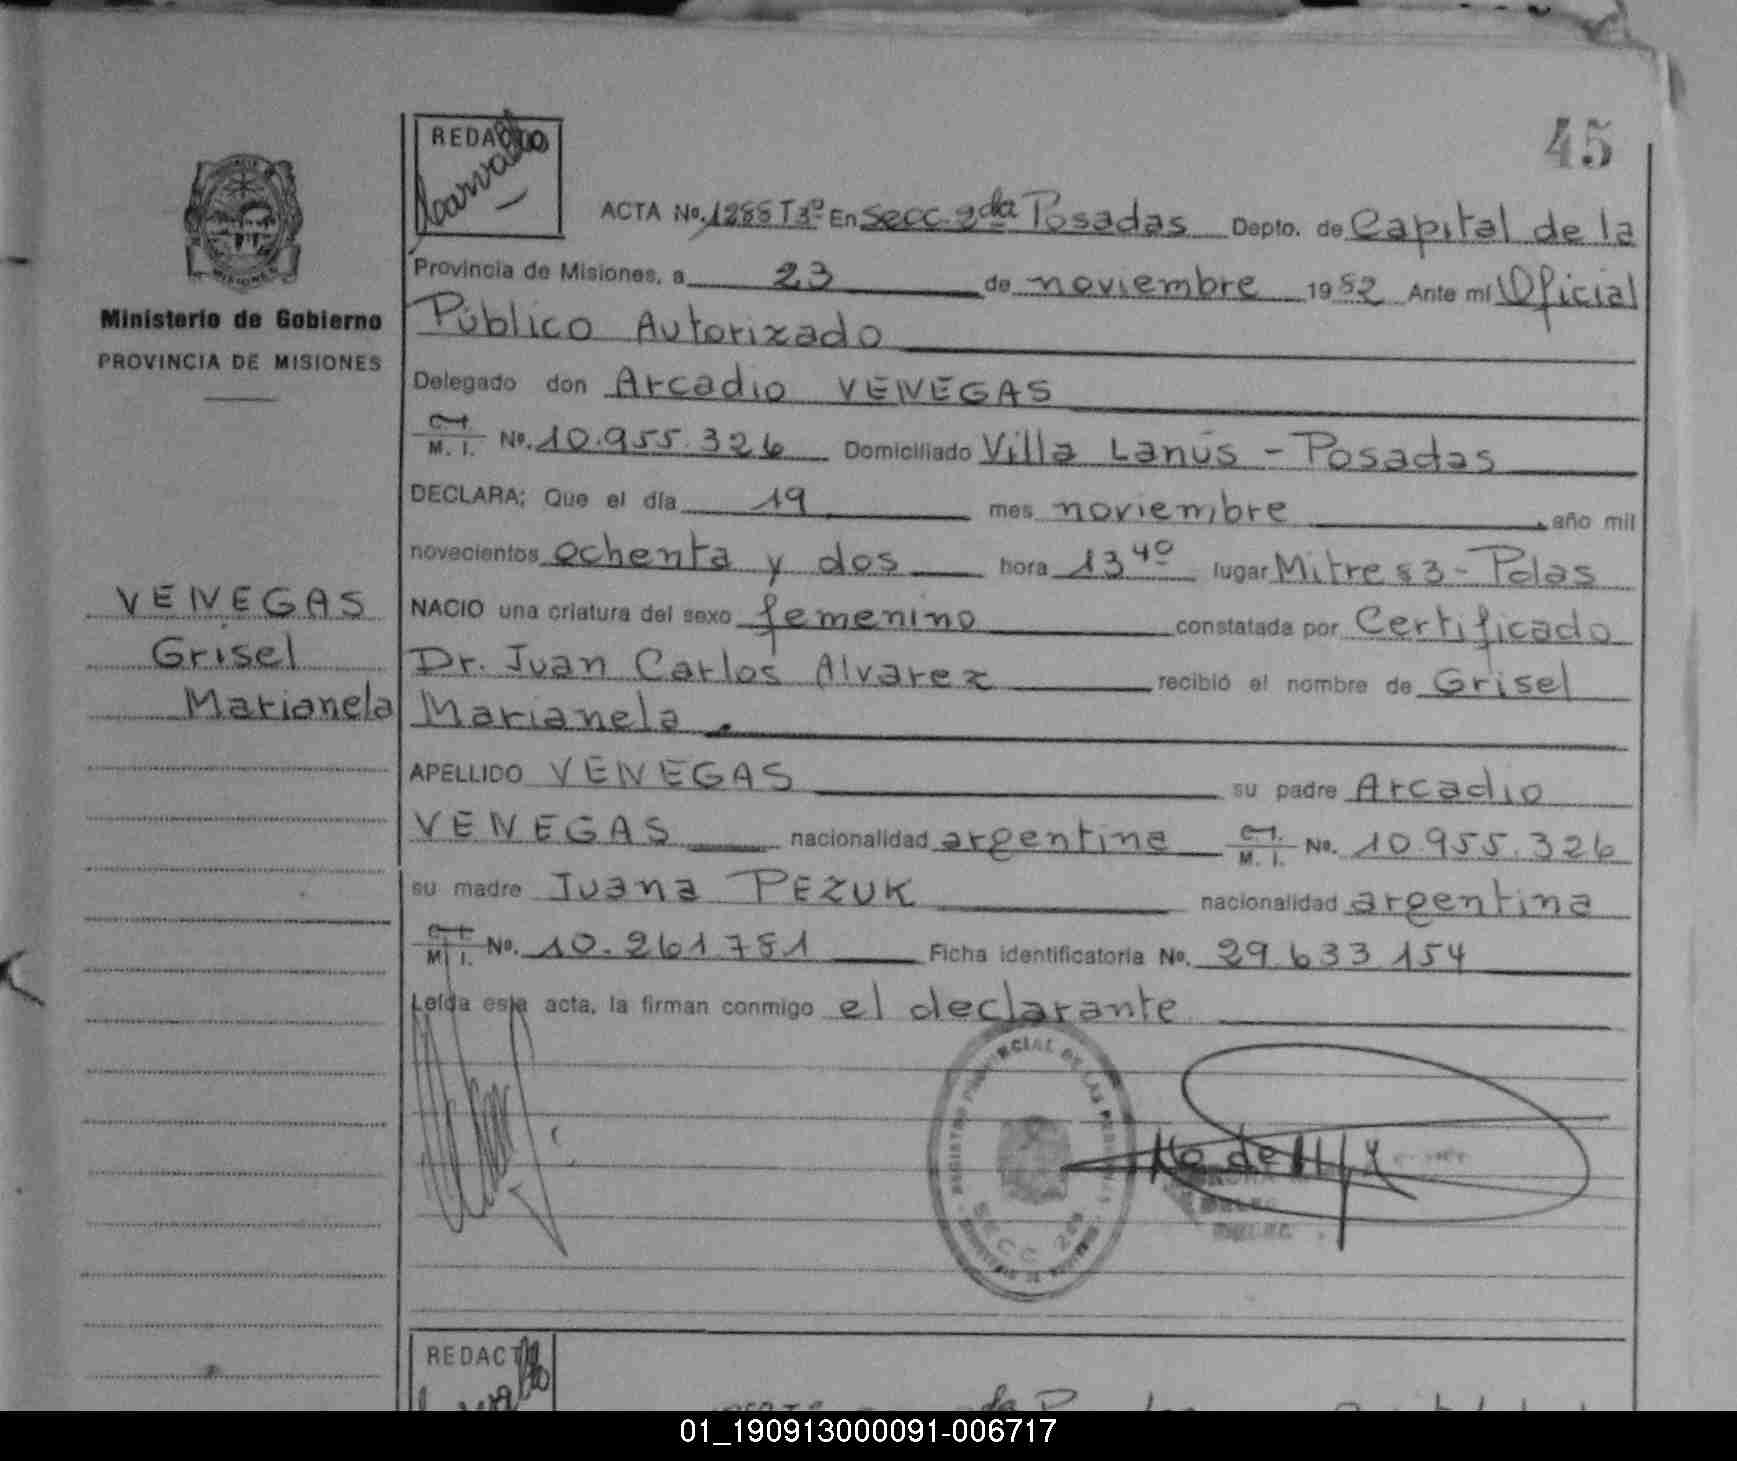 45
REDACTO
Carvallo
ACTA No. 1288 T3º En Secc. 2da Posadas Depto. de Capital de la
Provincia de Misiones, a 23 de noviembre 1982 Ante mí Oficial
Público Autorizado
Ministerio de Gobierno
PROVINCIA DE MISIONES
Delegado don Arcadio VENEGAS
C. I.
M. I. No. 10.955.326 Domiciliado Villa Lanús - Posadas
DECLARA; Que el día 19 mes noviembre año mil
novecientos ochenta y dos hora 13 40 lugar Mitre 83 - Pdas
VENEGAS
Grisel
Marianela
NACIO una criatura del sexo femenino constatada por Certificado
Dr. Juan Carlos Alvarez recibió el nombre de Grisel
Marianela.
APELLIDO VENEGAS su padre Arcadio
VENEGAS nacionalidad argentina C. I.
M. I. No. 10.955.326
su madre Juana PEZUK nacionalidad argentina
C. I.
M. I. No. 10.261.781 Ficha identificatoria No. 29.633.154
Leída esta acta, la firman conmigo el declarante
REGISTRO PROVINCIAL DE LAS PERSONAS
SECC 2da
REDACTO
01_190913000091-006717